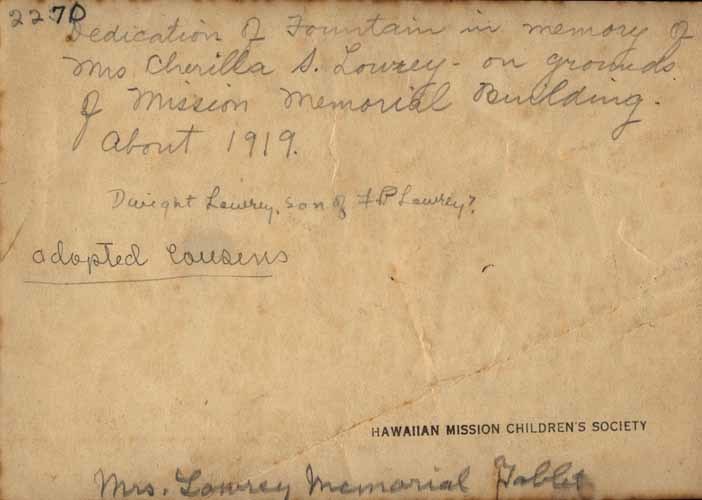 2270
Dedication of Fountain in memory of
Mrs Cherilla S. Lowrey - on grounds
of Mission Memorial Building.
About 1919.
Dwight Lowrey, son of F P Lowrey?
adopted cousens
HAWAIIAN MISSION CHILDREN'S SOCIETY
Mrs. Lowrey Memorial Tablet